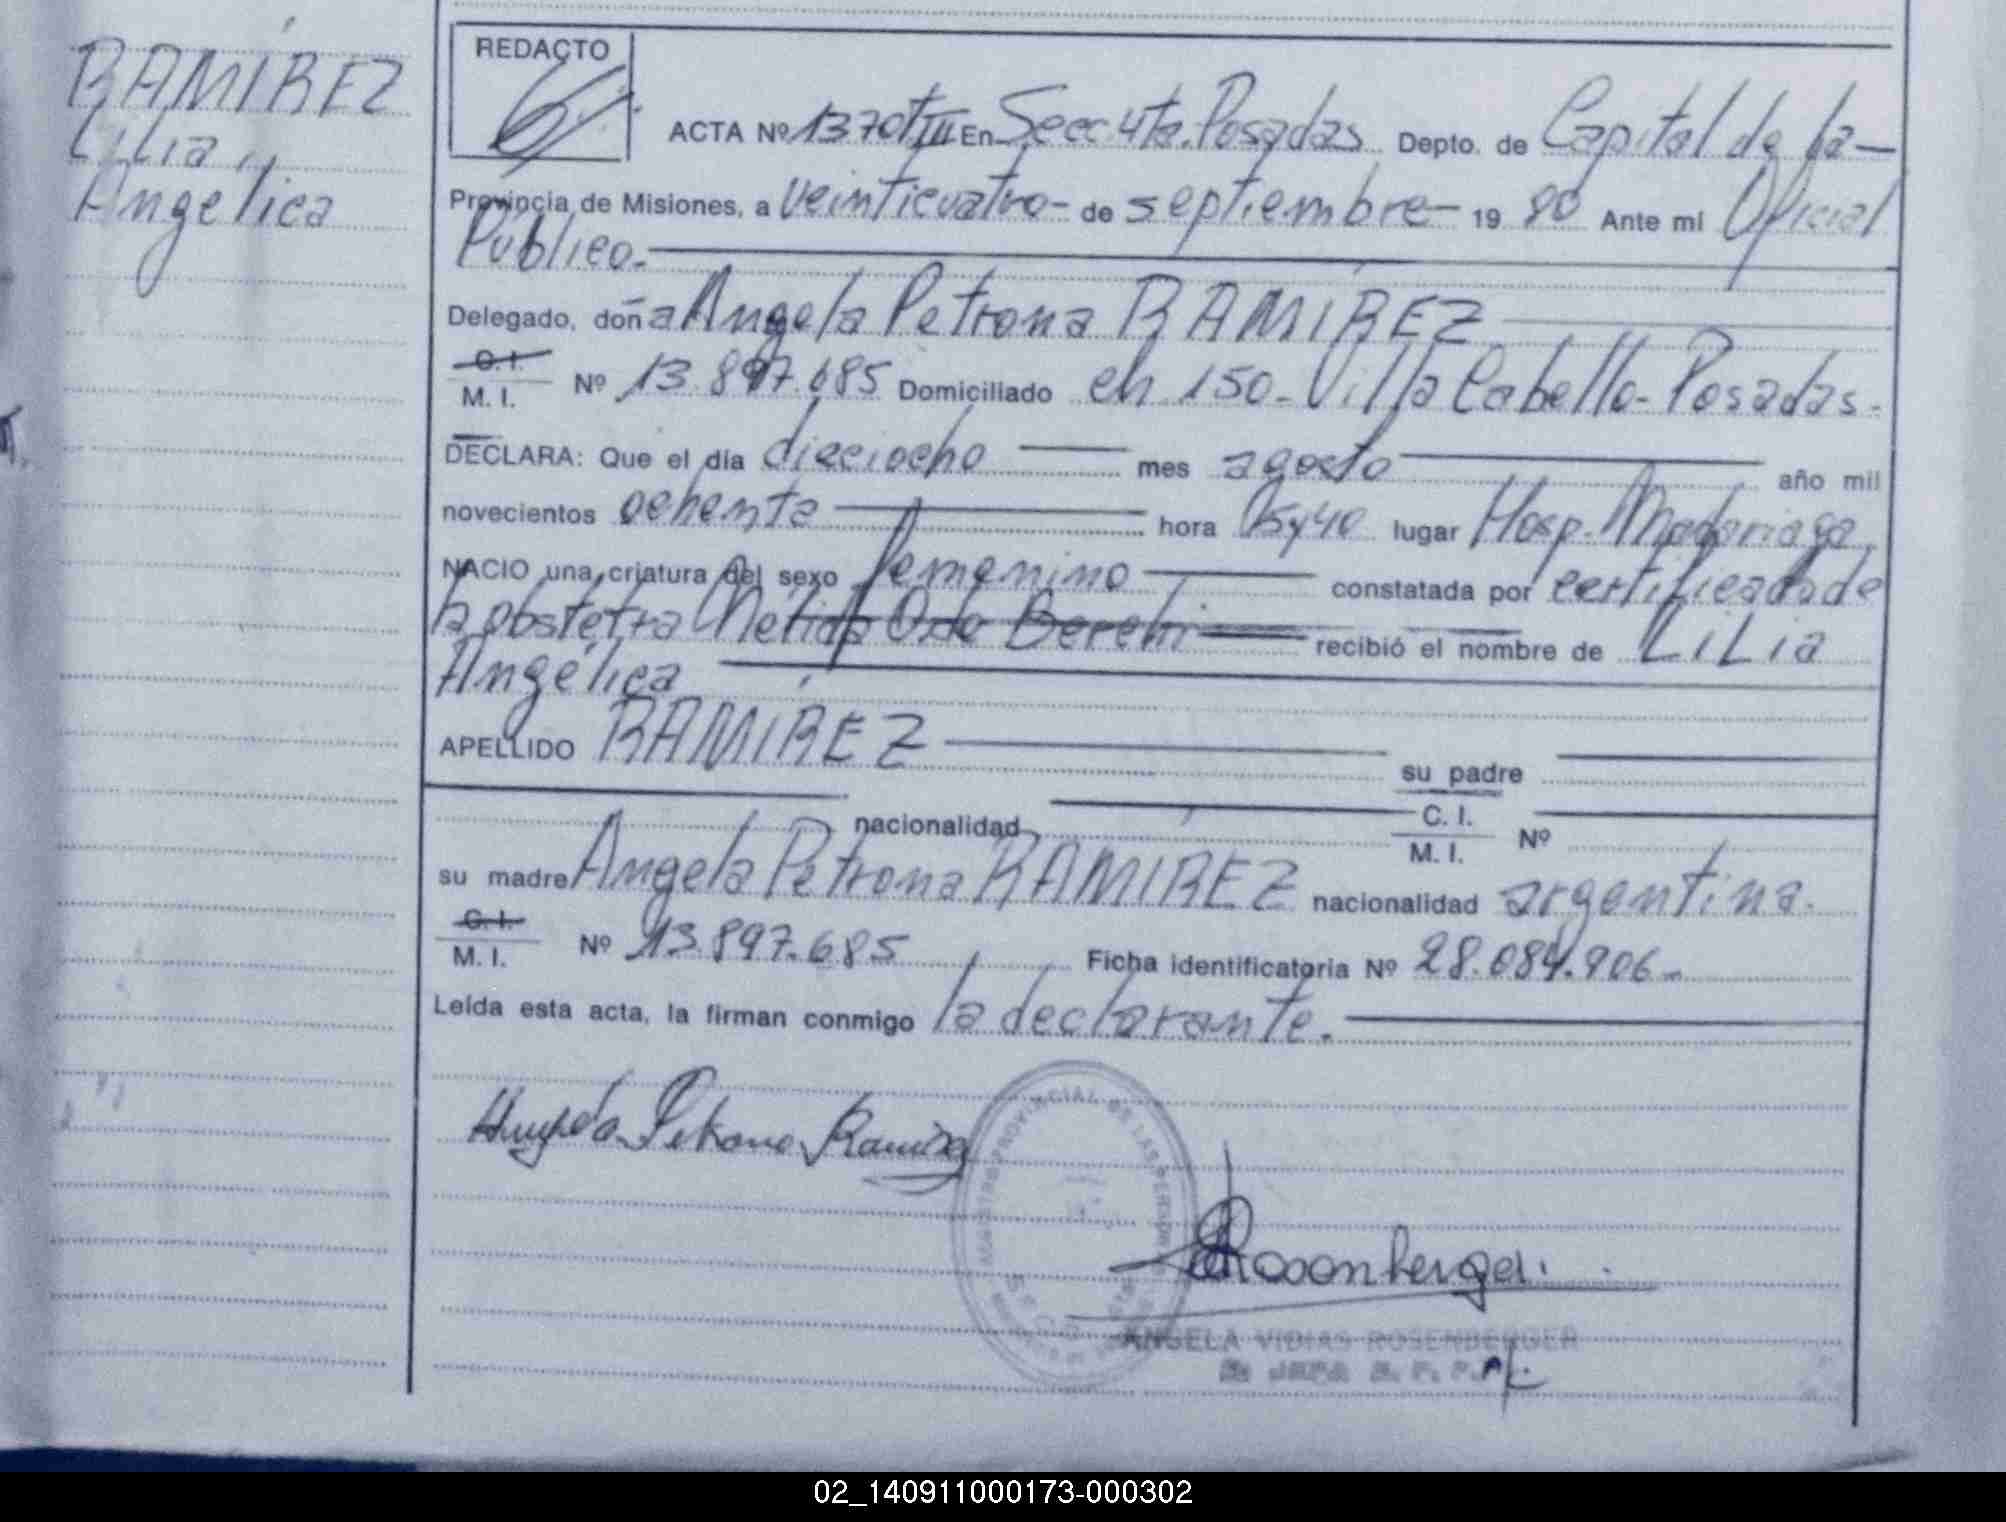 RAMÍREZ
Lilia
Angélica
REDACTO
ACTA Nº 1370 TIII En Secc 4ta. Posadas Depto. de Capital de la
Provincia de Misiones, a veinticuatro de septiembre 19 80 Ante mi Oficial
Público.
Delegado, doña Angela Petrona RAMÍREZ
C. I.
M. I. Nº 13.897.685 Domiciliado ch 150 - Villa Cabello - Posadas.
DECLARA: Que el día dieciocho mes agosto año mil
novecientos ochenta hora 05y40 lugar Hosp. Madariaga
NACIO una criatura del sexo femenino constatada por certificado de
la obstetra Nélida O. de recibió el nombre de Lilia
Angélica
APELLIDO RAMÍREZ su padre
nacionalidad C. I.
M. I. Nº
su madre Angela Petrona RAMÍREZ nacionalidad argentina.
C. I.
M. I. Nº 13.897.685 Ficha identificatoria Nº 28.084.906
Leída esta acta, la firman conmigo la declarante.
Angela Petrona Ramirez
REGISTRO PROVINCIAL DE LAS PERSONAS
Rosenberger
ANGELA VIDIAS ROSENBERGER
02_140911000173-000302